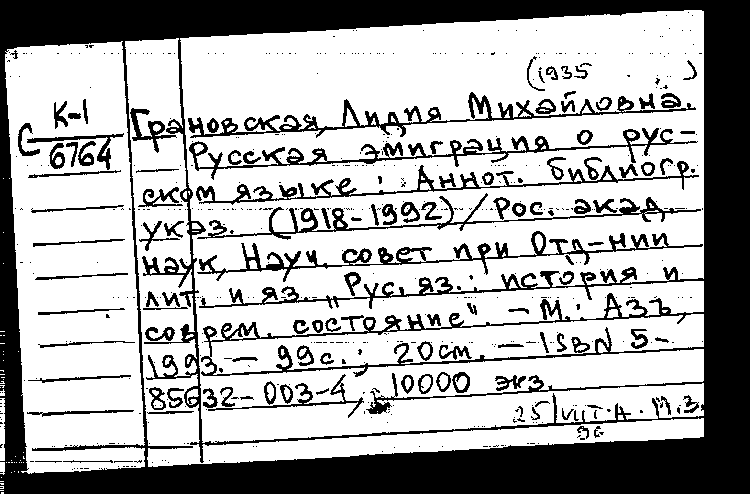 (1935 )
К-1
С
6764
Грановская, Лидия Михайловна.
Русская эмиграция о рус-
ском языке : Аннот. библиогр.
указ. (1918-1992) / Рос. акад.
наук, Науч. совет при Отд-нии
лит. и яз. „Рус. яз.: история и
соврем. состояние". - М.: Азъ,
1993. - 99 с.; 20 см. - ISBN 5-
85632-003-4, 10000 экз.
25/VIII А. М.З.
96